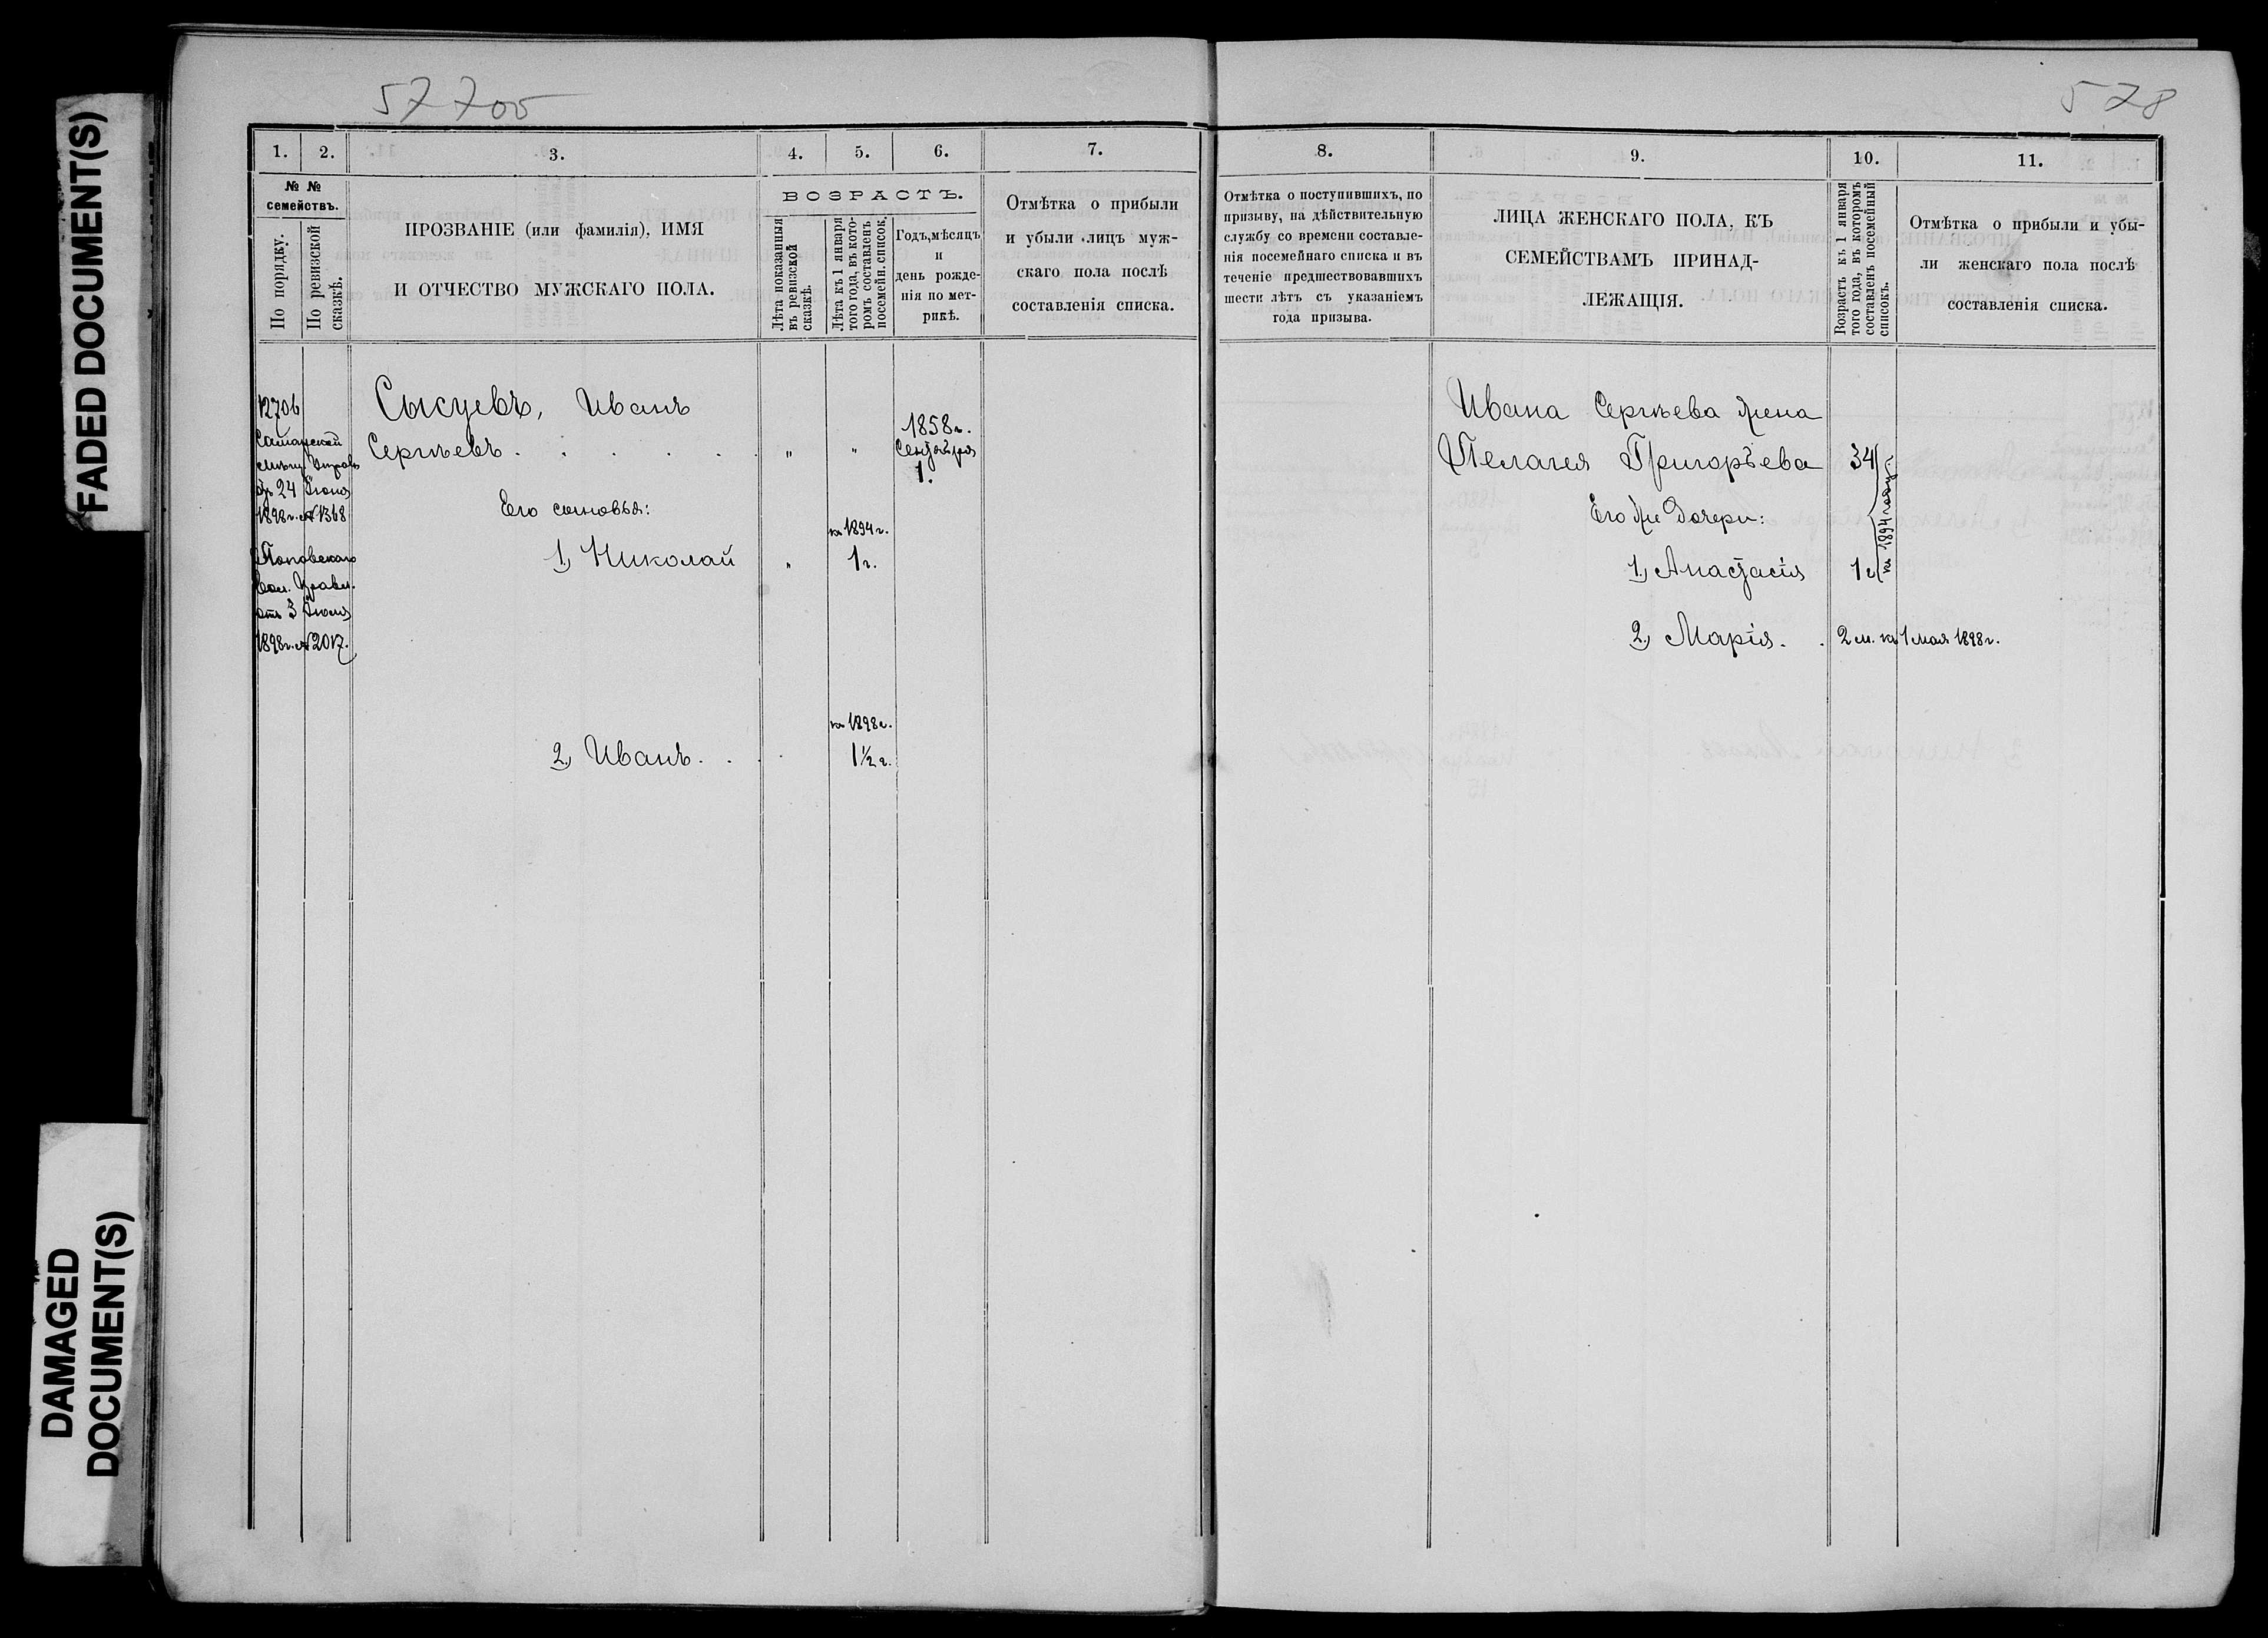 FADED DOCUMENT(S)
DAMAGED
DOCUMENT(S)
577об
578
1. 2. 3. 4. 5. 6. 7.
№ №
семействъ.
По порядку.
По ревизской
сказкѣ.
ПРОЗВАНІЕ (или фамилія), ИМЯ
И ОТЧЕСТВО МУЖСКАГО ПОЛА.
ВОЗРАСТЪ.
Лѣта показанныя
въ ревизской
сказкѣ.
Лѣта къ 1 января
того года, въ кото-
ромъ составленъ
посемейн. список.
Годъ, мѣсяцъ
и
день рожде-
нія по мет-
рикѣ.
Отмѣтка о прибыли
и убыли лицъ муж-
скаго пола послѣ
составленія списка.
12706
Самарской
мѣщ. Управы
отъ 24 Іюня
1898 г. № 1318
Поповскаго
Вол. Правл.
отъ 3 Іюля
1898 г. № 2017.
Сысуевъ, Иванъ
Сергѣевъ . . . . . . " "
1858 г.
Сентября
1.
Его сыновья:
на 1894 г.
1, Николай " 1 г.
на 1898 г.
2, Иванъ. . . 1½ г.
8. 9. 10. 11.
Отмѣтка о поступившихъ, по
призыву, на дѣйствительную
службу со времени составле-
нія посемейнаго списка и въ
теченіе предшествовавшихъ
шести лѣтъ съ указаніемъ
года призыва.
ЛИЦА ЖЕНСКАГО ПОЛА, КЪ
СЕМЕЙСТВАМЪ ПРИНАД-
ЛЕЖАЩІЯ.
Возрастъ къ 1 января
того года, въ которомъ
составленъ посемейный
списокъ.
Отмѣтка о прибыли и убы-
ли женскаго пола послѣ
составленія списка.
Ивана Сергѣева жена
Пелагея Григорьева 34
Его же дочери:
на 1894 годъ
1, Анастасія 1 г.
2, Марія. . 2 м. къ 1 мая 1898 г.